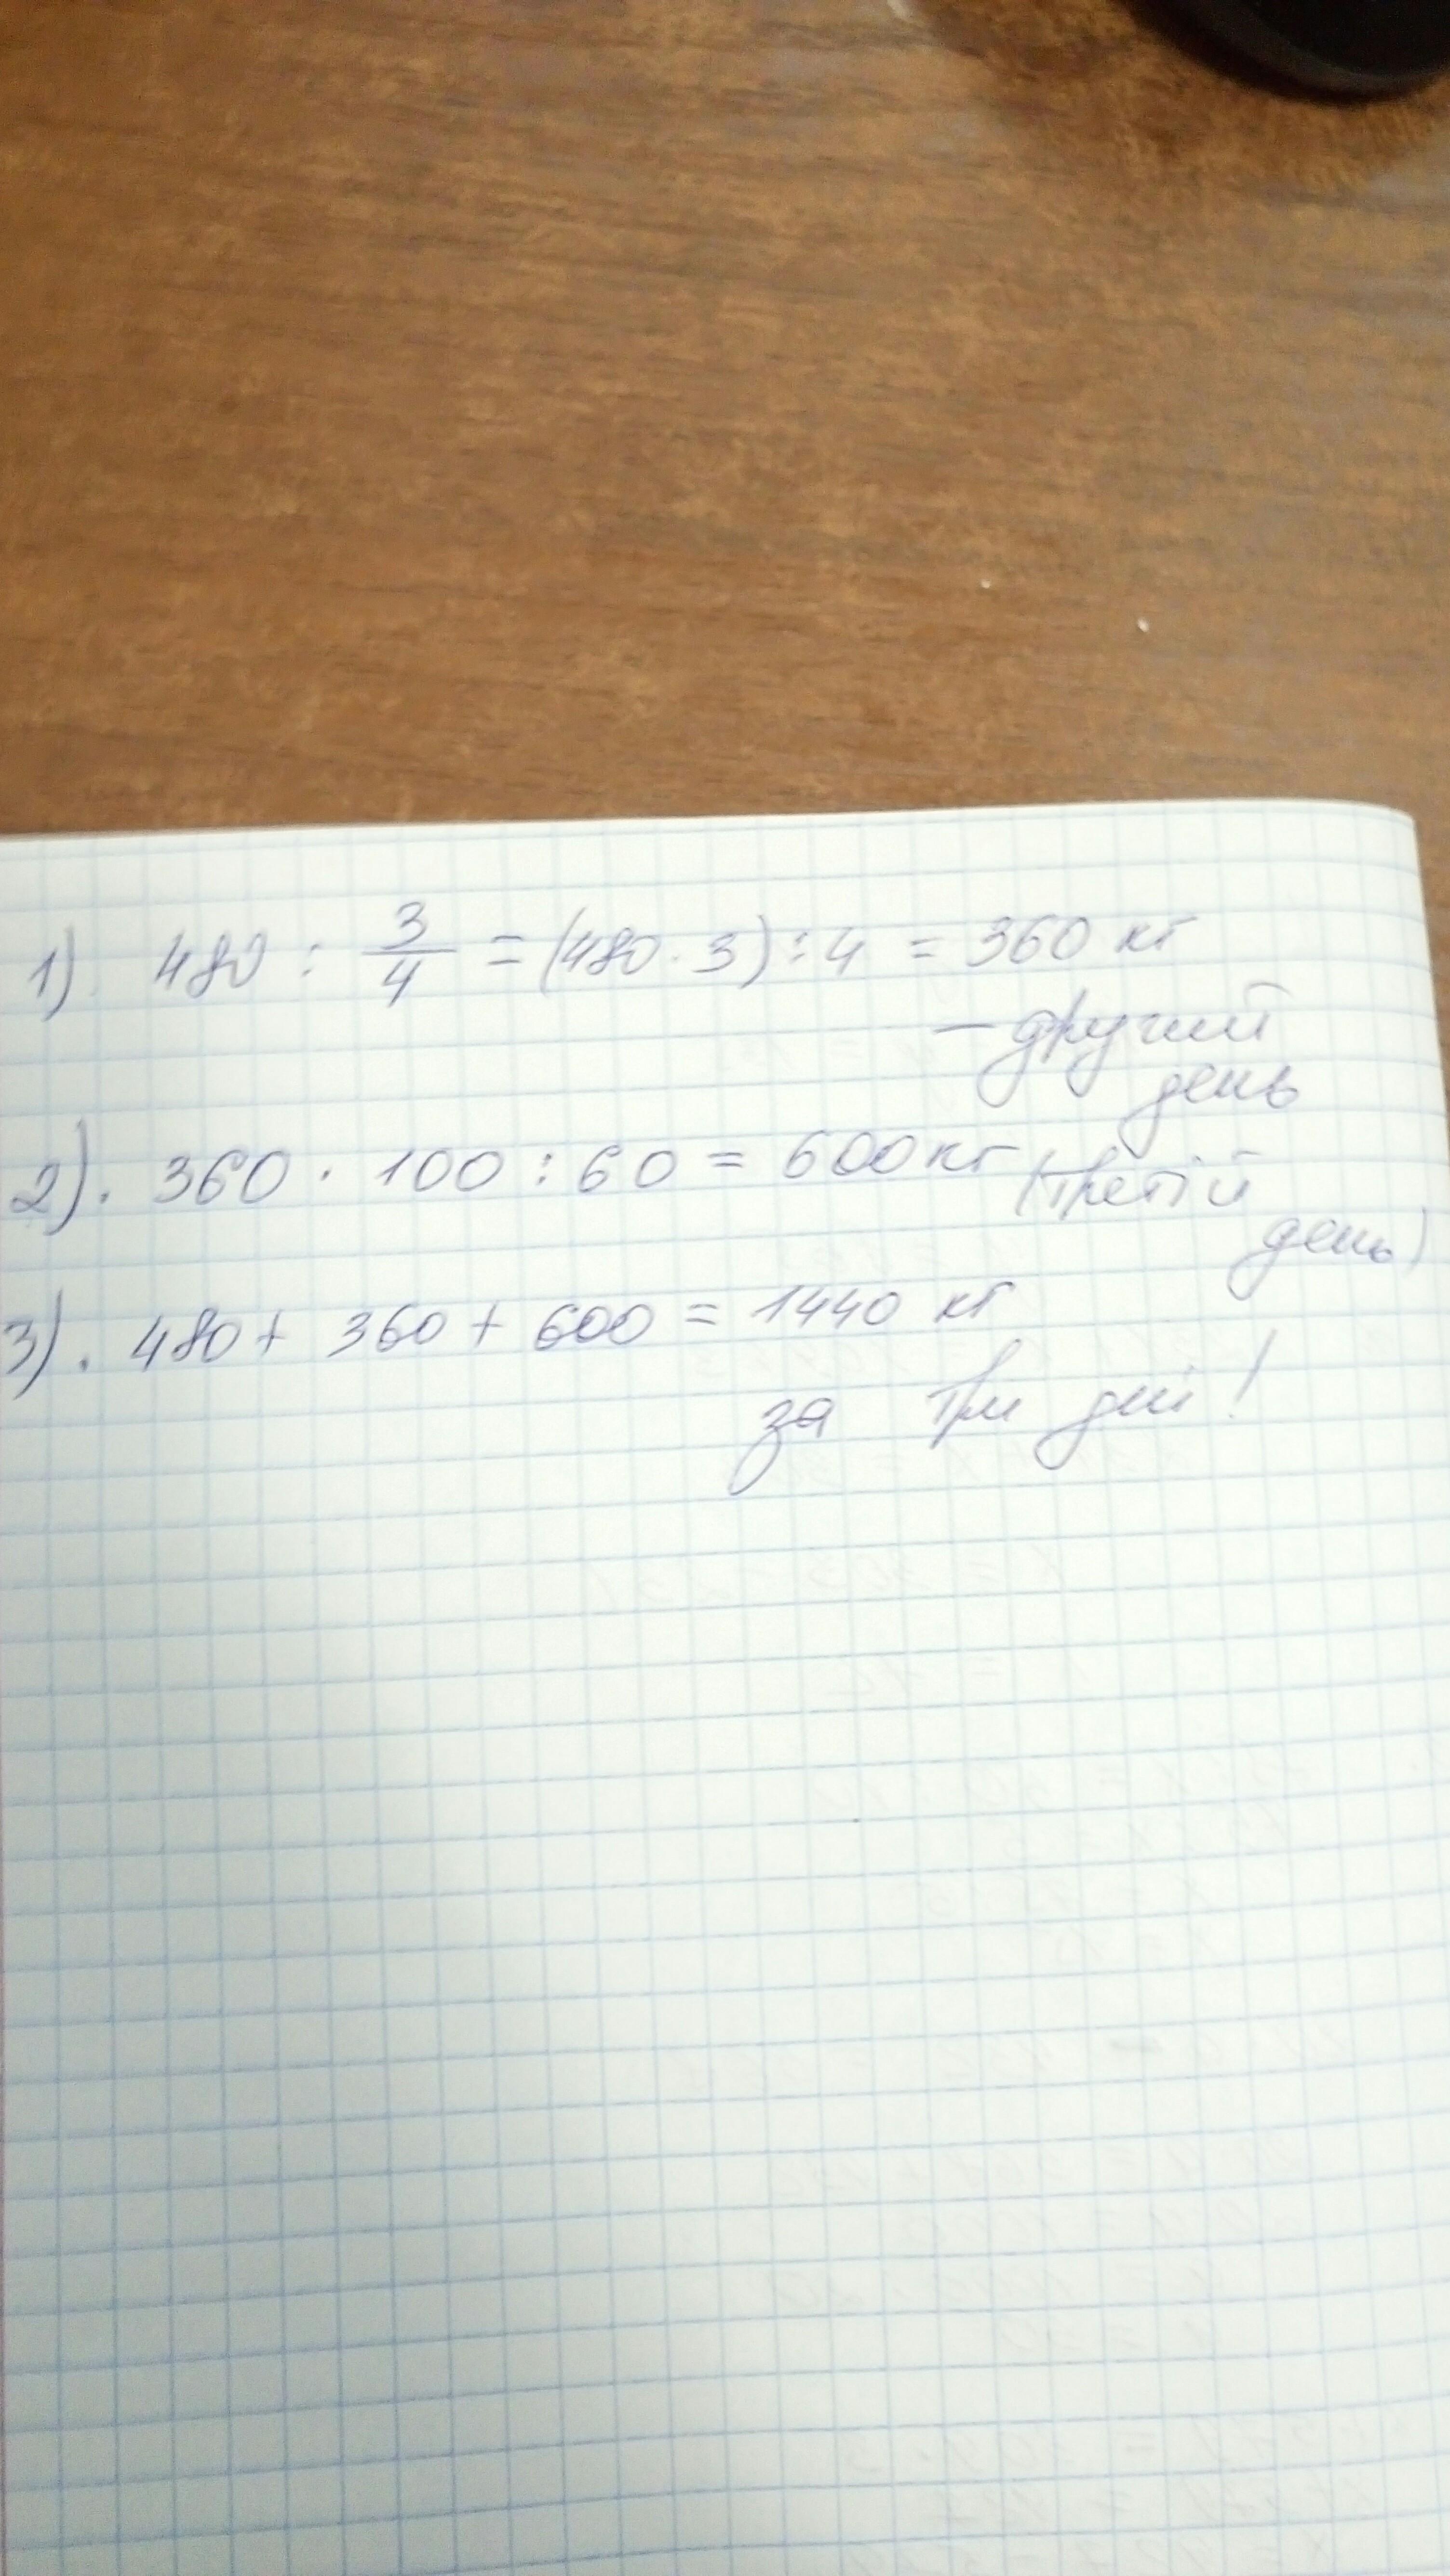 1) 480 : 3/4 = (480 · 3) : 4 = 360 кг
– другий
день
2). 360 · 100 : 60 = 600 кг (третій
день)
3). 480 + 360 + 600 = 1440 кг
за три дні!